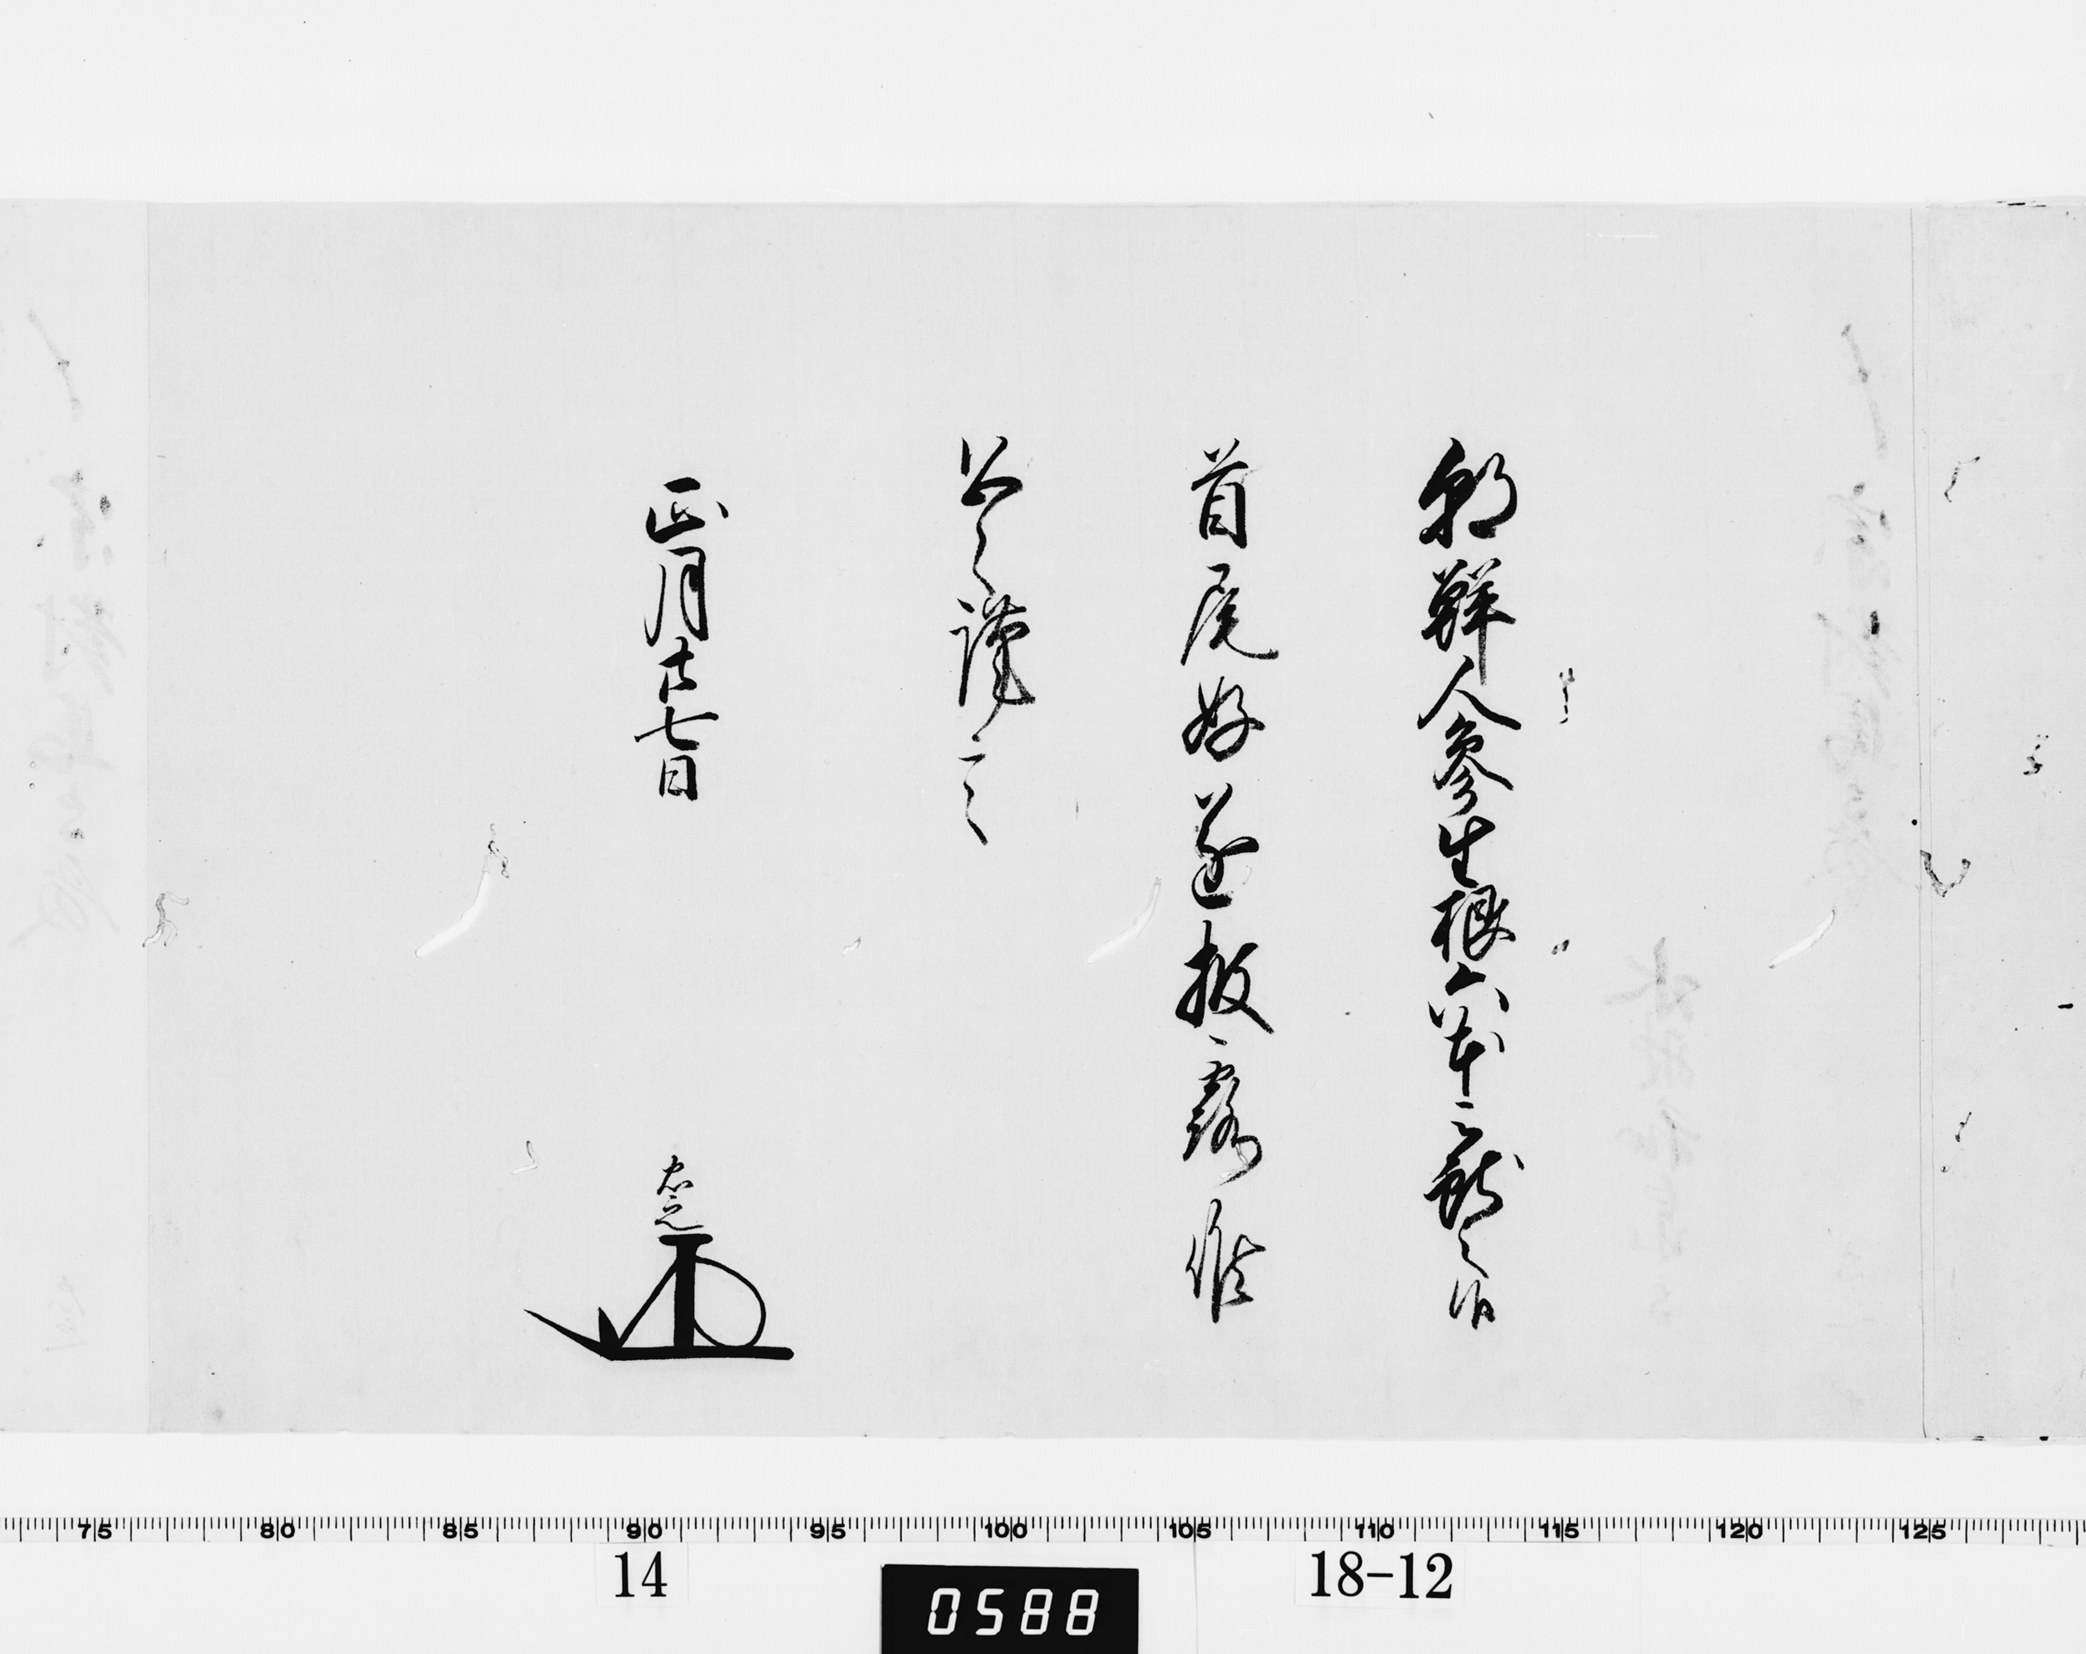 朝鮮人参生根六本之献之候
首尾好遂披露候
恐々謹言
正月廿七日
忠之
75 80 85 90 95 100 105 110 115 120 125
14 0588 18-12